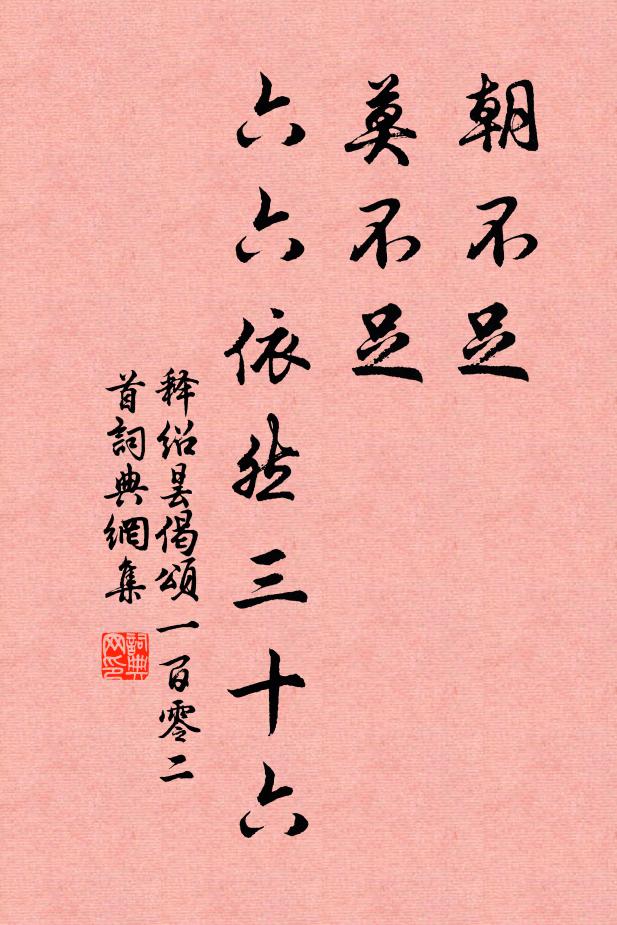 朝不足
莫不足
六六依然三十六
释绍昙偈頌一百零二
首詞典網集
詞典
网印